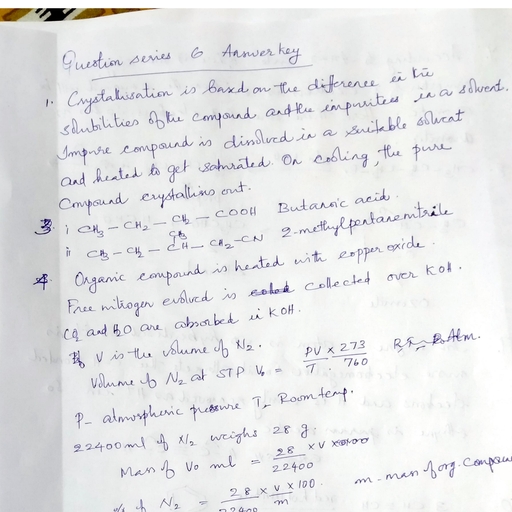 Question series 6 Answer key
1. Crystallisation is based on the difference in the
solubilities of the compound and the impurities in a solvent.
Impure compound is dissolved in a suitable solvent
and heated to get saturated. On cooling, the pure
Compound crystallins out.
3. i CH3 – CH2 – CH2 – COOH Butanoic acid.
CH3
ii CH3 – CH2 – CH – CH2 – CN 2-methylpentanenitrile
4. Organic compound is heated with copper oxide.
Free nitrogen evolved is collected over KOH.
CO2 and H2O are absorbed in KOH.
If V is the volume of N2.
Volume of N2 at STP V0 = PV/T × 273/760
P – atmospheric pressure T – Room temp.
22400 ml of N2 weighs 28 g.
Mass of V0 ml = 28/22400 × V
% of N2 = 28/22400 × V/m × 100. m – mass of org. Compou